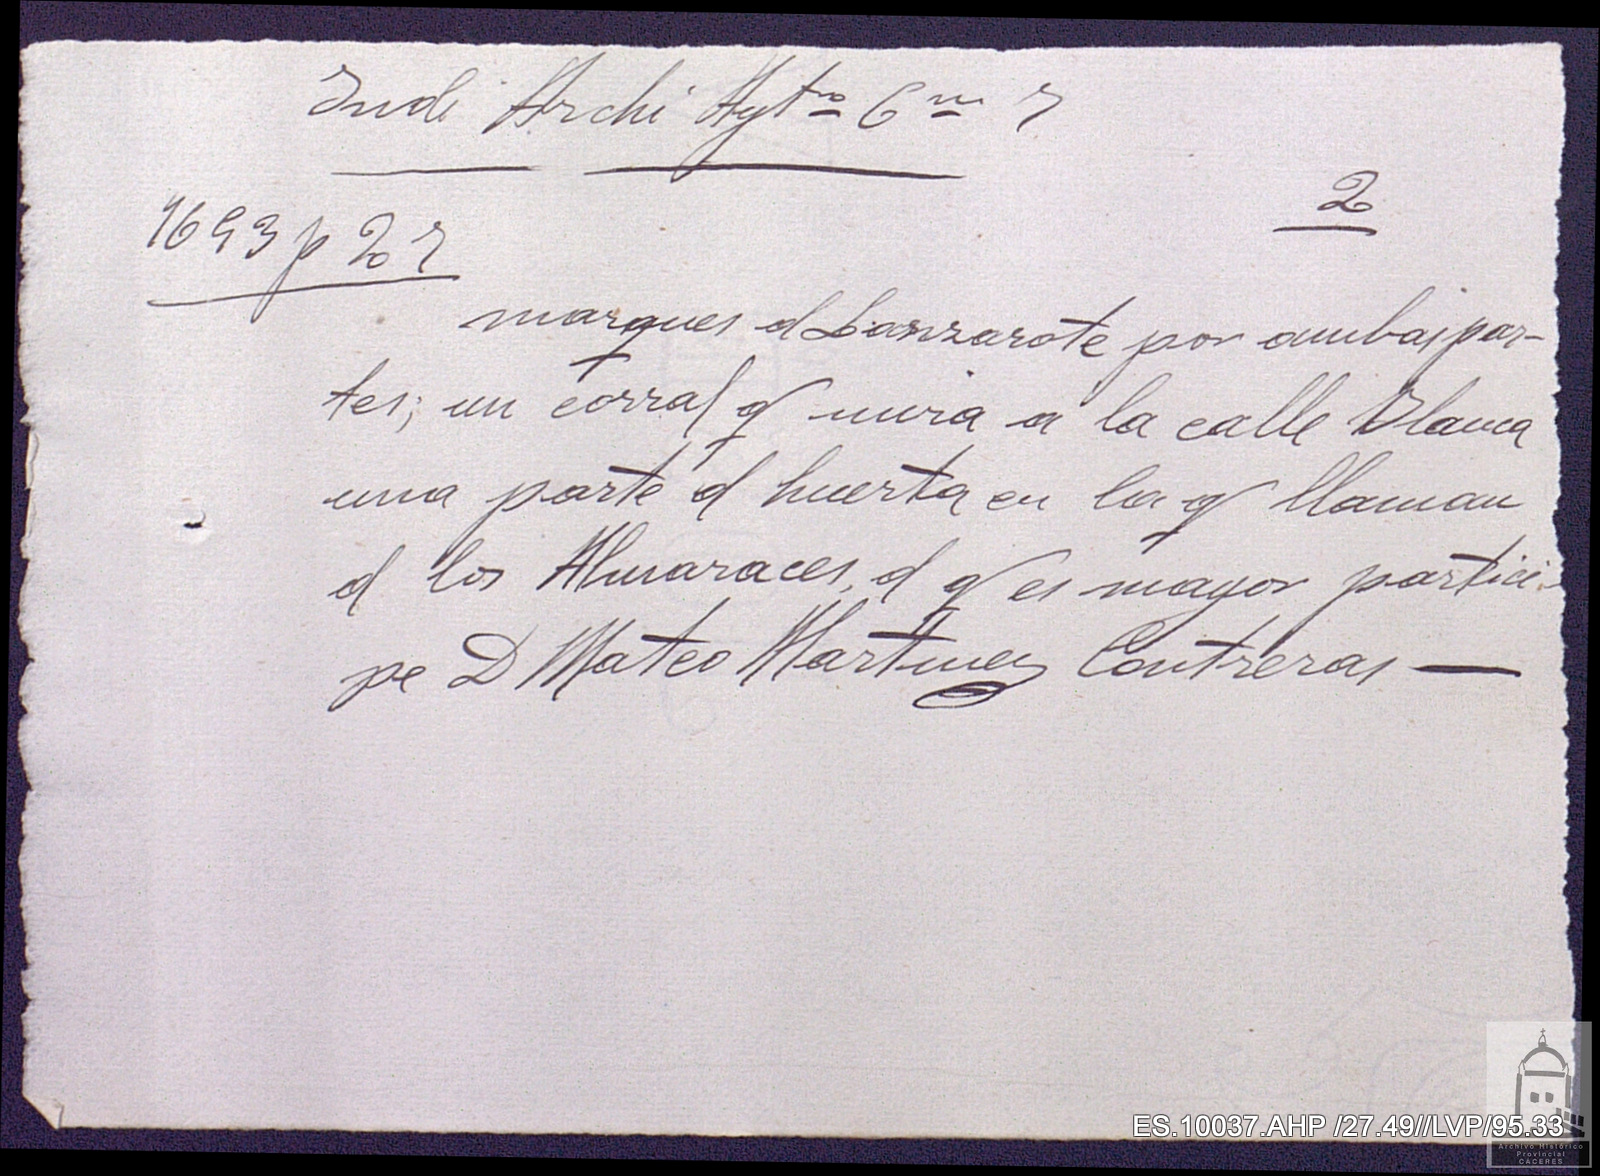 Indi Archi Aytº Cm 7
2
1693 p 27
marques d Lanzarote por ambas par-
tes; un corral q mira a la calle Blanca
una parte d huerta en la q llaman
d los Almaraces, d q es mayor partici-
pe D Mateo Martinez Contreras —
ES.10037.AHP /27.49//LVP/95.33
Archivo Histórico
Provincial
CÁCERES